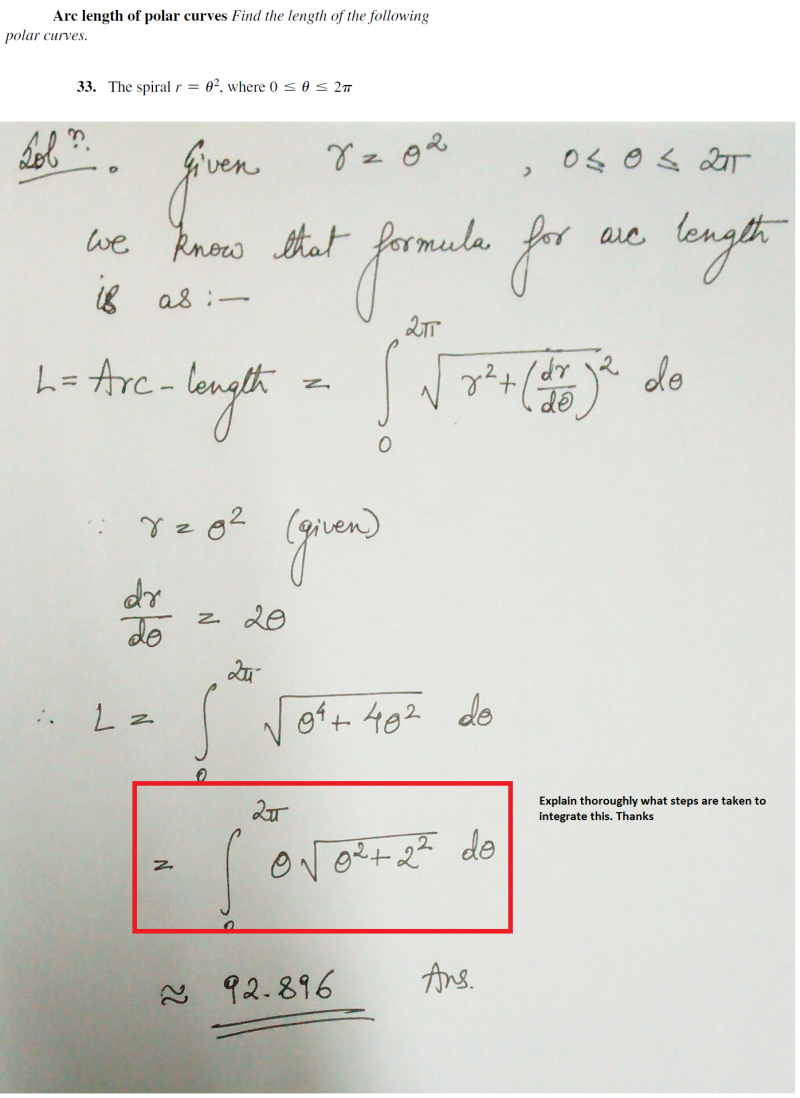 Arc length of polar curves Find the length of the following
polar curves.
33. The spiral r = θ², where 0 ≤ θ ≤ 2π
Solⁿ. Given r = θ² , 0 ≤ θ ≤ 2π
we know that formula for arc length
is as :—
L = Arc-length = ∫₀^{2π} √(r² + (dr/dθ)²) dθ
∵ r = θ² (given)
dr/dθ = 2θ
∴ L = ∫₀^{2π} √(θ⁴ + 4θ²) dθ
= ∫₀^{2π} θ√(θ² + 2²) dθ
Explain thoroughly what steps are taken to
integrate this. Thanks
≈ 92.896 Ans.